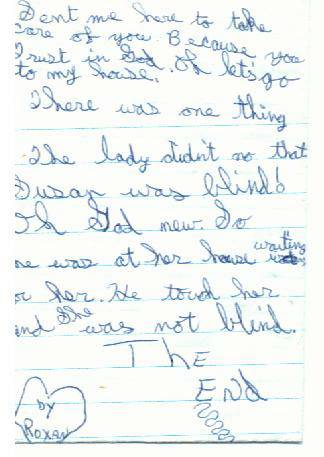 Sent me here to take
care of you. Because you
Trust in God. Oh let's go
to my house.
There was one thing
The lady didn't no that
Susan was blind!
Oh God new. So
he was at her house waiting
or her. He touch her
and she was not blind.
The
End
by
Roxan